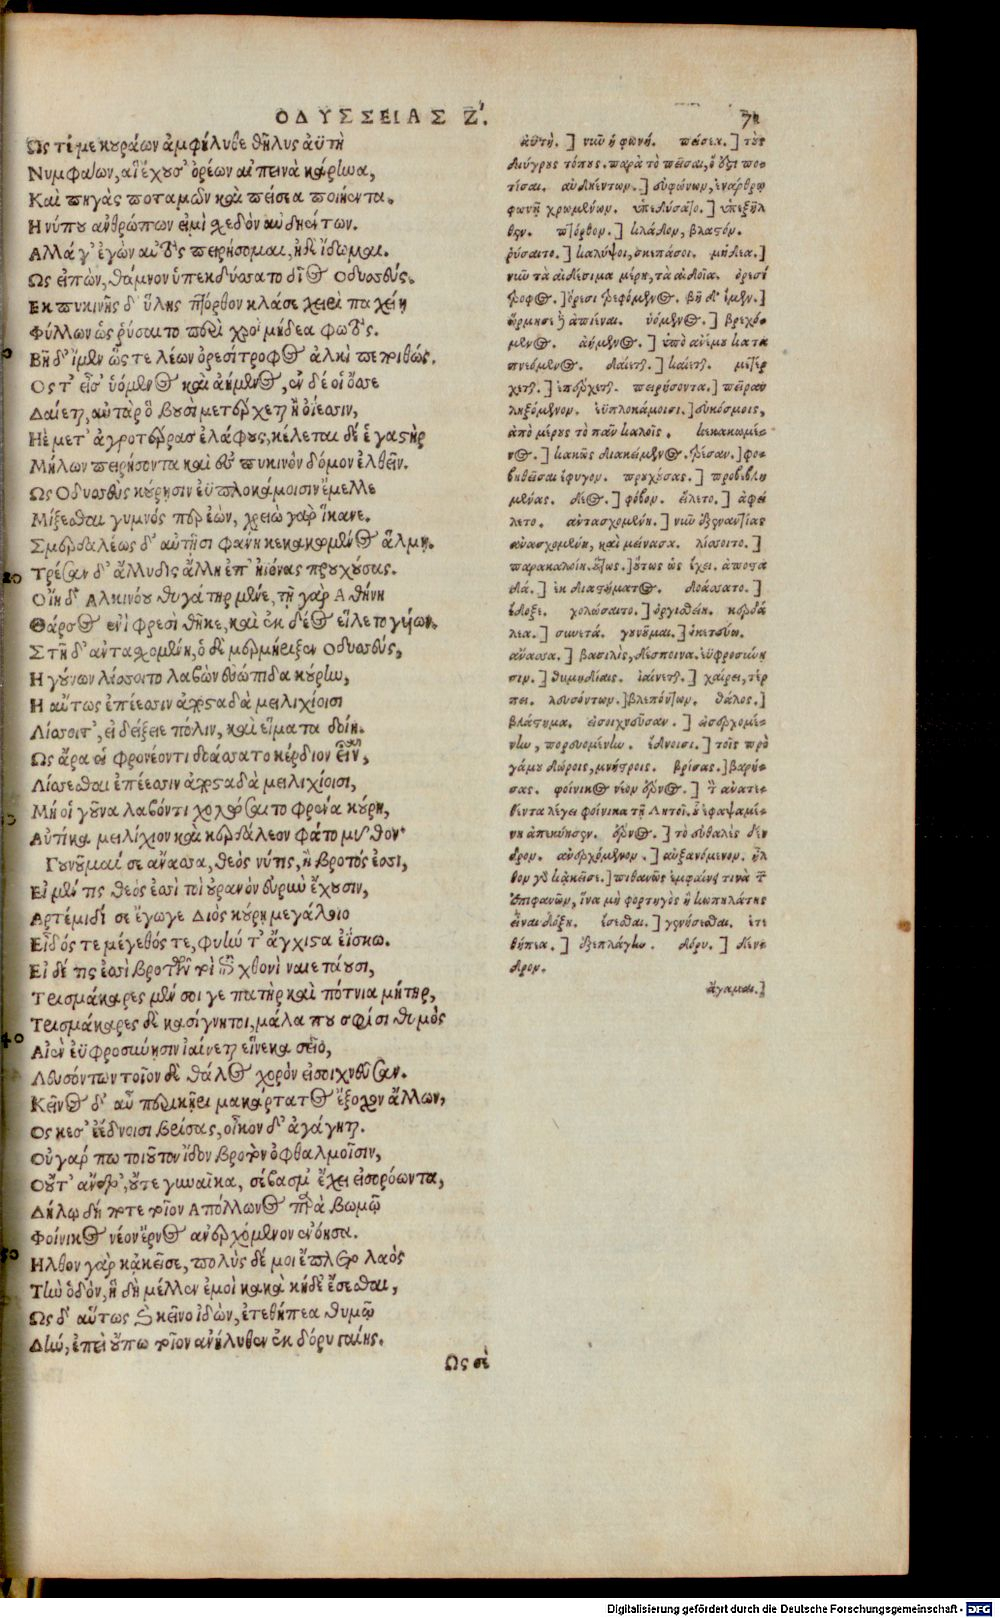 ΟΔΥΣΣΕΙΑΣ Ζ΄.
Ως τέ με κουράων ἀμφήλυθε θῆλυς ἀϋτὴ
Νυμφάων, αἳ ἔχουσ' ὀρέων αἰπεινὰ κάρηνα,
Καὶ πηγὰς ποταμῶν καὶ πείσεα ποιήεντα.
Η νύ που ἀνθρώπων εἰμὶ σχεδὸν αὐδηέντων.
Αλλά γ' ἐγὼν αὐτὸς πειρήσομαι, ἠδὲ ἴδωμαι.
Ως εἰπὼν, θάμνων ὑπεκδύσατο δῖος Οδυσσεύς.
Εκ πυκινῆς δ' ὕλης πτόρθον κλάσε χειρὶ παχείῃ
Φύλλων ὡς ῥύσαιτο περὶ χροῒ μήδεα φωτός.
Βῆ δ' ἴμεν ὥς τε λέων ὀρεσίτροφος ἀλκὶ πεποιθώς.
Ος τ' εἶσ' ὑόμενος καὶ ἀήμενος, ἐν δέ οἱ ὄσσε
Δαίεται, αὐτὰρ ὃ βουσὶ μετέρχεται ἢ ὀΐεσσιν,
Ηὲ μετ' ἀγροτέρας ἐλάφους, κέλεται δέ ἑ γαστὴρ
Μήλων πειρήσοντα καὶ ἐς πυκινὸν δόμον ἐλθεῖν.
Ως Οδυσσεὺς κούρῃσιν ἐϋπλοκάμοισιν ἔμελλε
Μίξεσθαι γυμνός περ ἐών, χρειὼ γὰρ ἵκανε.
Σμερδαλέως δ' αὐτῇσι φάνη κεκακωμένος ἅλμῃ.
Τρέσσαν δ' ἄλλυδις ἄλλη ἐπ' ἠϊόνας προχούσας.
Οἴη δ' Αλκινόου θυγάτηρ μένε, τῇ γὰρ Αθήνη
Θάρσος ἐνὶ φρεσὶ θῆκε, καὶ ἐκ δέος εἵλετο γυίων.
Στῆ δ' ἄντα σχομένη, ὁ δὲ μερμήριξεν Οδυσσεύς,
Η γούνων λίσσοιτο λαβὼν εὐώπιδα κούρην,
Η αὔτως ἐπέεσσιν ἀποσταδὰ μειλιχίοισι
Λίσσοιτ', εἰ δείξειε πόλιν, καὶ εἵματα δοίη.
Ως ἄρα οἱ φρονέοντι δοάσσατο κέρδιον εἶναι,
Λίσσεσθαι ἐπέεσσιν ἀποσταδὰ μειλιχίοισι,
Μή οἱ γοῦνα λαβόντι χολώσαιτο φρένα κούρη,
Αὐτίκα μειλίχιον καὶ κερδαλέον φάτο μῦθον·
Γουνοῦμαί σε ἄνασσα, θεὸς νύ τις, ἢ βροτός ἐσσι,
Εἰ μέν τις θεὸς ἐσσὶ τοὶ οὐρανὸν εὐρὺν ἔχουσιν,
Αρτέμιδί σε ἔγωγε Διὸς κούρῃ μεγάλοιο
Εἶδός τε μέγεθός τε, φυήν τ' ἄγχιστα ἐΐσκω.
Εἰ δέ τις ἐσσὶ βροτῶν τοὶ ἐπὶ χθονὶ ναιετάουσι,
Τρισμάκαρες μέν σοι γε πατὴρ καὶ πότνια μήτηρ,
Τρισμάκαρες δὲ κασίγνητοι, μάλα που σφίσι θυμὸς
Αἰὲν ἐϋφροσύνῃσιν ἰαίνεται εἵνεκα σεῖο,
Λευσόντων τοῖον δὲ θάλος χορὸν εἰσοιχνεῦσαν.
Κεῖνος δ' αὖ περὶ κῆρι μακάρτατος ἔξοχον ἄλλων,
Ος κε σ' ἐέδνοισι βρίσας, οἶκον δ' ἀγάγηται.
Οὐ γάρ πω τοιοῦτον ἴδον βροτὸν ὀφθαλμοῖσιν,
Οὔτ' ἄνδρ', οὔτε γυναῖκα, σέβασμ' ἔχει εἰσορόωντα,
Δήλῳ δή ποτε τοῖον Απόλλωνος παρὰ βωμῷ
Φοίνικος νέον ἔρνος ἀνερχόμενον ἐνόησα.
Ηλθον γὰρ κἀκεῖσε, πολὺς δέ μοι ἕσπετο λαὸς
Τὴν ὁδὸν, ᾗ δὴ μέλλεν ἐμοὶ κακὰ κήδε' ἔσεσθαι,
Ως δ' αὔτως καὶ κεῖνο ἰδὼν, ἐτεθήπεα θυμῷ
Δήν, ἐπεὶ οὔπω τοῖον ἀνήλυθεν ἐκ δόρυ γαίης.
Ως σὲ
10
20
30
40
50
ἀϋτή.] νῦν ἡ φωνή. πείσεα.] τοὺς
διύγρους τόπους. παρὰ τὸ πεῖσαι, ὅ ἐστι πο-
τίσαι. αὐδηέντων.] εὐφώνων, ἐνάρθρῳ
φωνῇ χρωμένων. ὑπεδύσατο.] ὑπεξῆλ
θεν. πτόρθον.] κλάδον, βλαστόν.
ῥύσαιτο.] καλύψοι, σκεπάσοι. μήδεα.]
νῦν τὰ αἰδέσιμα μέρη, τὰ αἰδοῖα. ὀρεσί
τροφος.] ὄρεσι τρεφόμενος. βῆ δ' ἴμεν.]
ὥρμησε δὲ ἀπιέναι. ὑόμενος.] βρεχό-
μενος. ἀήμενος.] ὑπὸ ἀνέμου κατα
πνεόμενος. δαίεται.] καίεται. μετέρ
χεται.] ἐπέρχεται. πειρήσοντα.] πεῖραν
ληξόμενον. ἐϋπλοκάμοισι.] εὐκόσμοις,
ἀπὸ μέρους τὸ πᾶν καλοῖς. κεκακωμέ-
νος.] κακῶς διακείμενος. τρέσαν.] φο-
βηθεῖσαι ἔφυγον. προχούσας.] προβεβλη
μένας. δέος.] φόβον. εἵλετο.] ἀφεί
λετο. ἄντα σχομένη.] νῦν ἐξεναντίας
ἀνασχομένη, καὶ μείνασα. λίσσοιτο.]
παρακαλοίη. αὔτως.] οὕτως ὡς ἔχει. ἀποστα
δά.] ἐκ διαστήματος. δοάσσατο.]
ἔδοξε. χολώσαιτο.] ὀργισθείη. κερδα
λέα.] συνετά. γουνοῦμαι.] ἱκετεύω.
ἄνασσα.] βασιλὶς, δέσποινα. εὐφροσύνῃ
σιν.] θυμηδίαις. ἰαίνεται.] χαίρει, τέρ
πει. λευσόντων.] βλεπόντων. θάλος.]
βλάστημα. εἰσοιχνεῦσαν.] εἰσερχομέ-
νην, πορευομένην. ἕδνοισι.] τοῖς πρὸ
γάμου δώροις, μνήστροις. βρίσας.] βαρή-
σας. φοίνικος νέον ἔρνος.] τὸν ἀνατε-
θέντα λέγει φοίνικα τῇ Λητοῖ, οὗ ἐφαψαμέ-
νη ἀπεκύησεν. ἔρνος.] τὸ εὐθαλὲς δέν
δρον. ἀνερχόμενον.] αὐξανόμενον. ἦλ
θον γὰρ κἀκεῖσε.] πιθανῶς ἐμφαίνει τινὰ τῶν
ἐπιφανῶν, ἵνα μὴ φορτηγὸς ἢ κωπηλάτης
εἶναι δόξῃ. ἔσεσθαι.] γενήσεσθαι. ἐτε
θήπεα.] ἐξεπλάγην. δόρυ.] δέν-
δρον.
ἄγαμαι.]
Digitalisierung gefördert durch die Deutsche Forschungsgemeinschaft - DFG